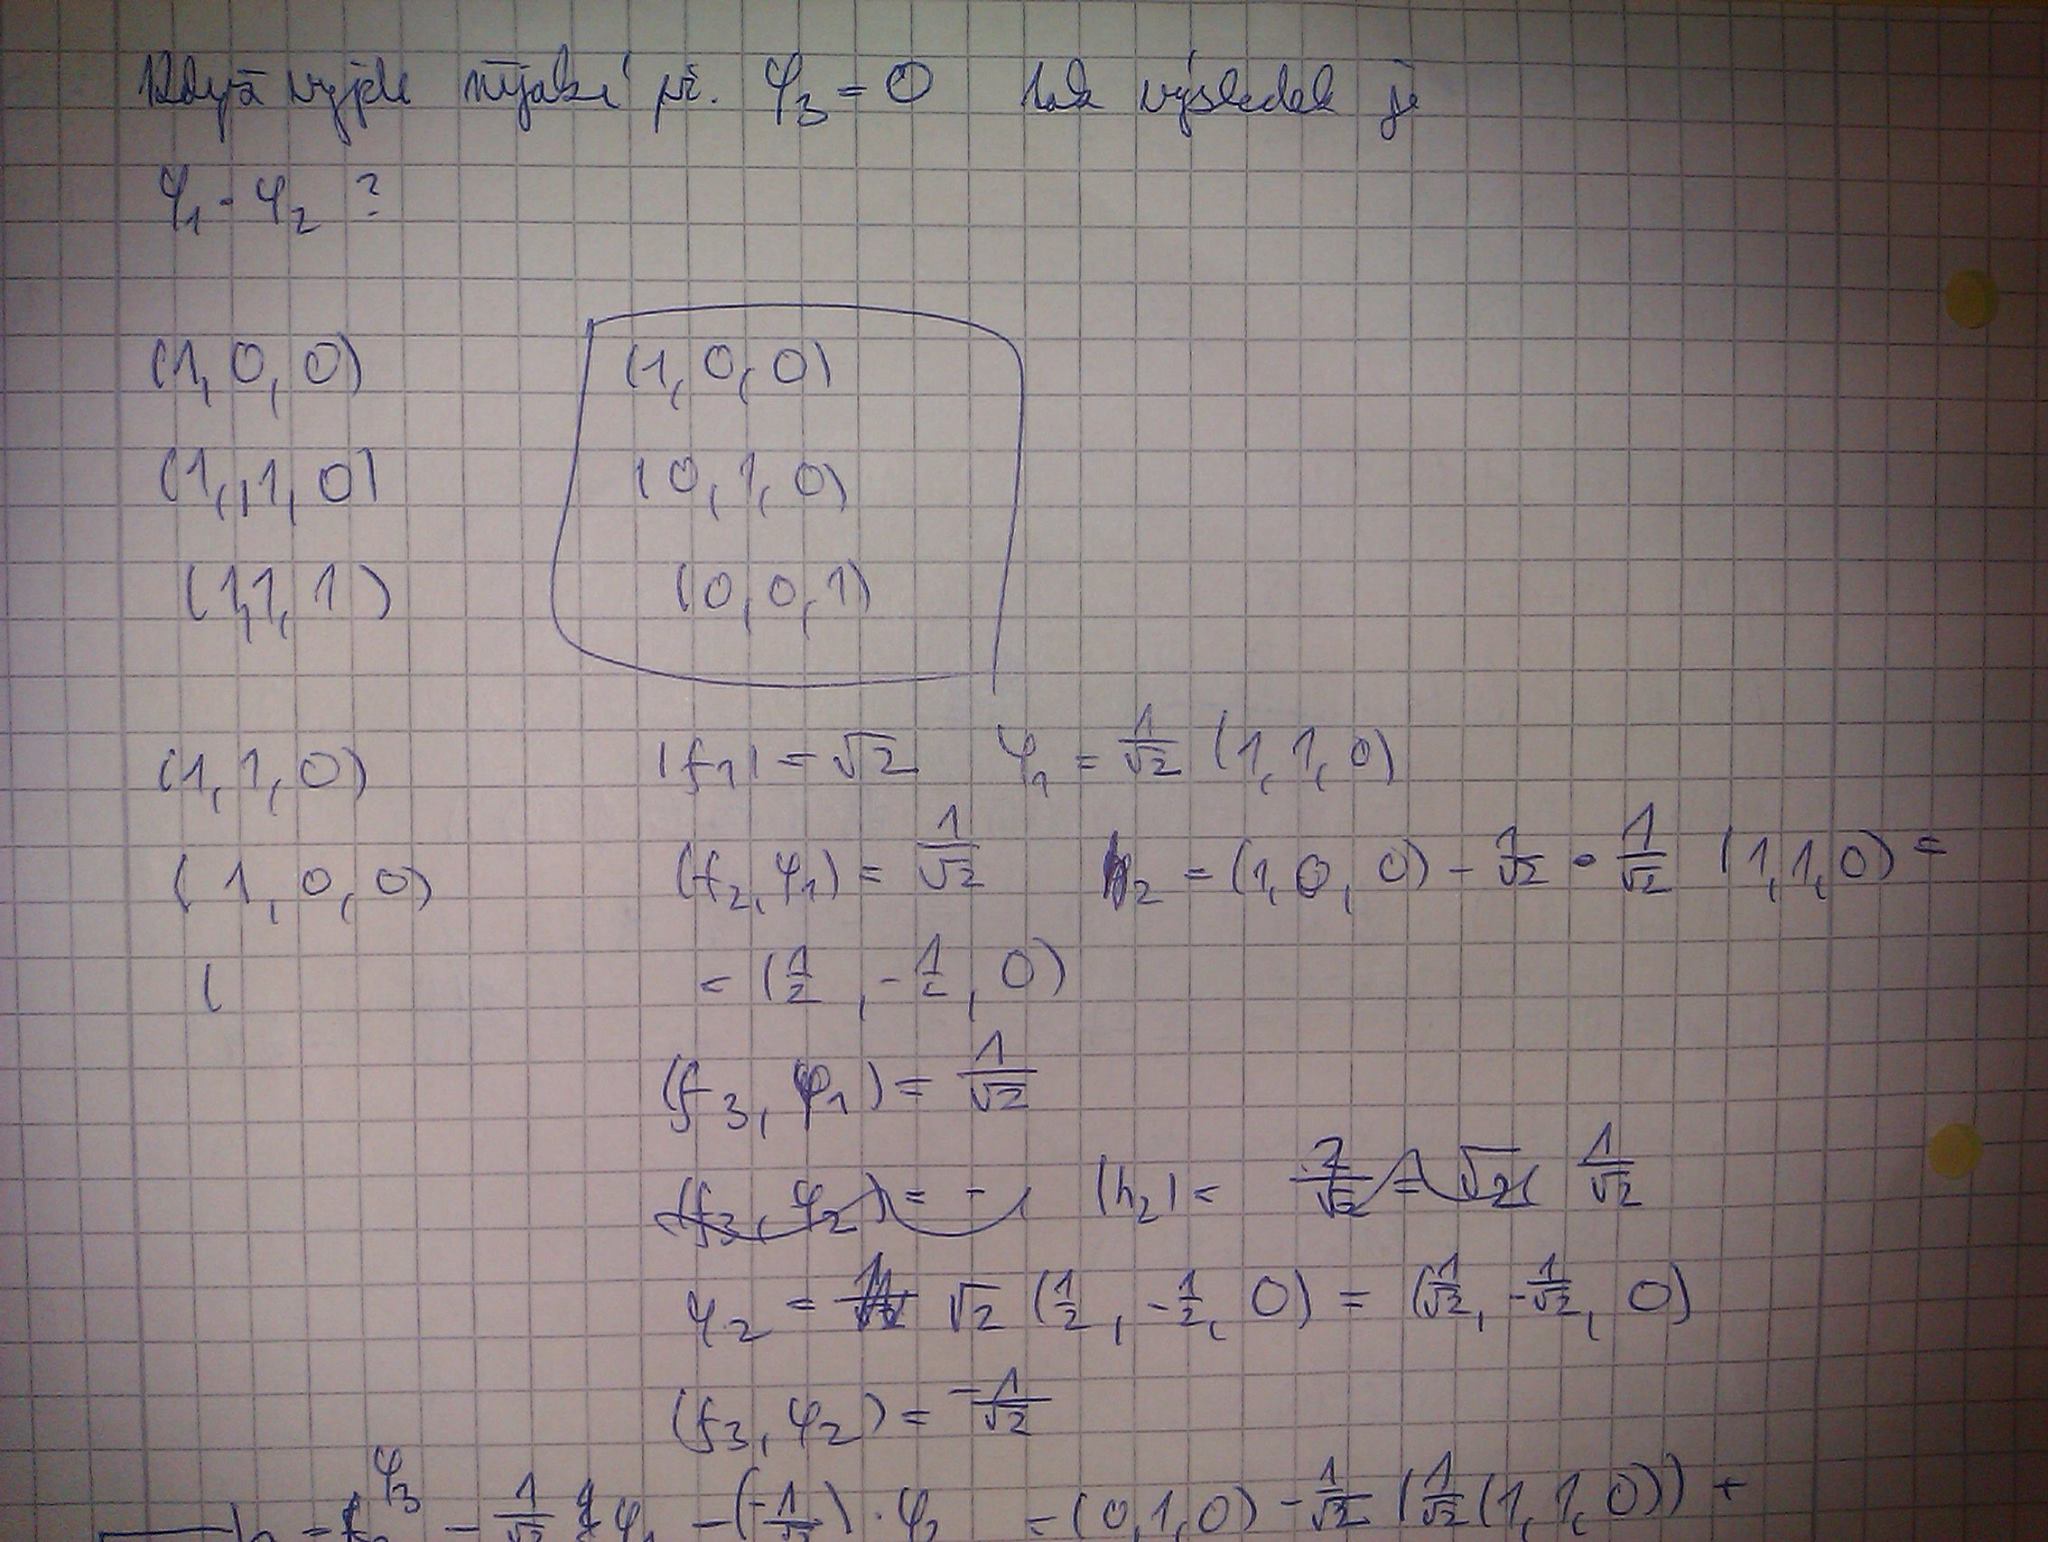 Když vyjde nějaké př. φ₃ = 0 tak výsledek je
φ₁ - φ₂ ?
(1, 0, 0) (1, 0, 0)
(1, 1, 0) (0, 1, 0)
(1, 1, 1) (0, 0, 1)
(1, 1, 0) |f₁| = √2 φ₁ = 1/√2 (1, 1, 0)
(1, 0, 0) (f₂, φ₁) = 1/√2 h₂ = (1, 0, 0) - 1/√2 · 1/√2 (1, 1, 0) =
( = (1/2, -1/2, 0)
(f₃, φ₁) = 1/√2
(f₃, φ₂) = - |h₂| = 2/√2 = √2 1/√2
φ₂ = √2 (1/2, -1/2, 0) = (1/√2, -1/√2, 0)
(f₃, φ₂) = -1/√2
φ₃
= - 1/√2 φ₁ - (-1/√2) · φ₂ = (0, 1, 0) - 1/√2 (1/√2 (1, 1, 0)) +